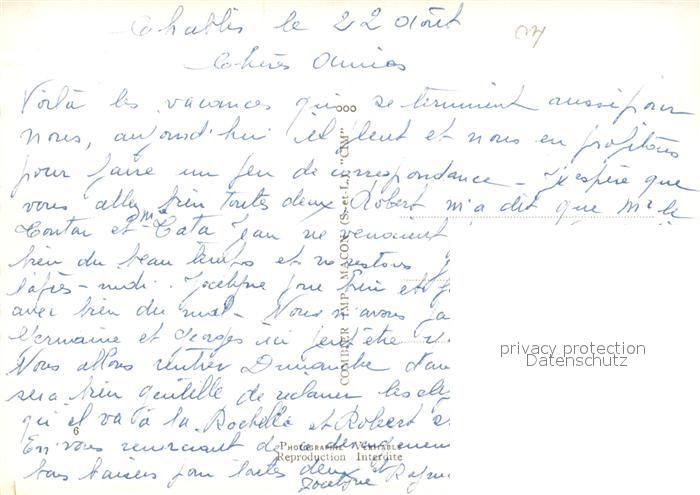 Chablis le 22 Août
Chères Amies
Voilà les vacances qui se terminent aussi pour
nous, aujourd'hui il pleut et nous en profitons
pour faire un peu de correspondance - J'espère que
vous allez bien toutes deux Robert m'a dit que Mr le
et Mme Tata Jean ne venaient
bien du beau temps et restons
l'après-midi. Jocelyne joue bien et
avec bien du mal - Nous n'avons
Germaine et Georges ici peut être
Nous allons rentrer Dimanche
sera bien gentille de réclamer les
qu'il va à la Rochelle et Robert
6
En vous remerciant de
bons baisers pour toutes deux et
Jocelyne
COMBIER IMP. MACON (S.-et-L.) "CIM"
PHOTOGRAPHIE VÉRITABLE
Reproduction Interdite
privacy protection
Datenschutz